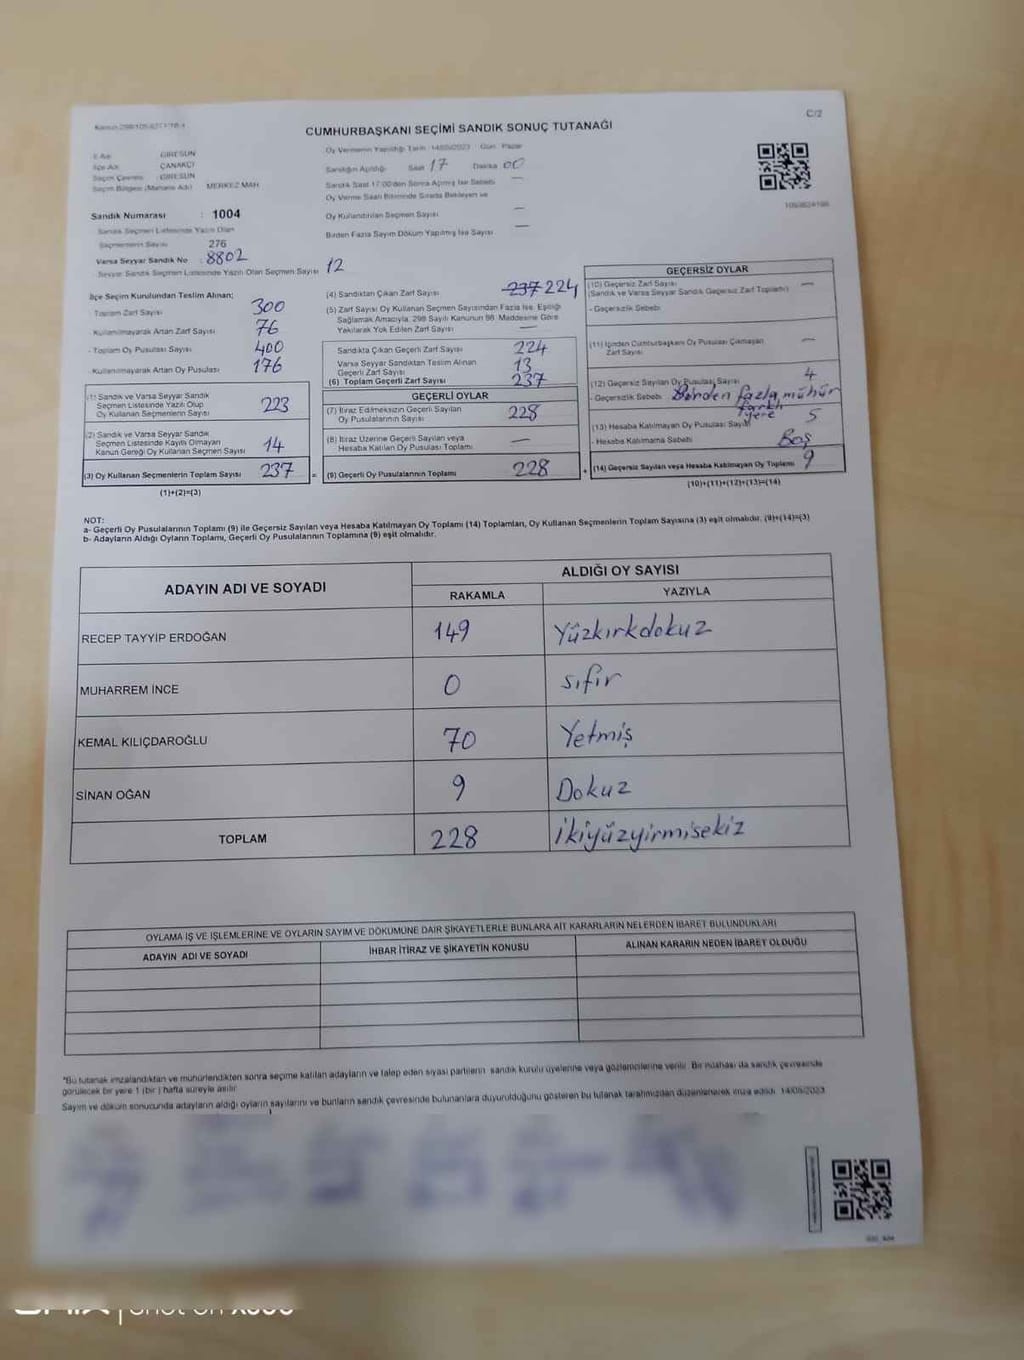 C/2
CUMHURBAŞKANI SEÇİMİ SANDIK SONUÇ TUTANAĞI
İl Adı : GİRESUN
İlçe Adı : ÇANAKÇI
Seçim Çevresi : GİRESUN
Seçim Bölgesi (Mahalle Adı) MERKEZ MAH.
Sandık Numarası : 1004
Sandık Seçmen Listesinde Yazılı Olan
Seçmenlerin Sayısı 276
Varsa Seyyar Sandık No : 8802
Seyyar Sandık Seçmen Listesinde Yazılı Olan Seçmen Sayısı 12
Oy Vermenin Yapıldığı Tarih : 14/05/2023 Gün : Pazar
Sandığın Açıldığı Saat 17 Dakika 00
Sandık Saat 17:00'den Sonra Açılmış İse Sebebi —
Oy Verme Saati Bitiminde Sırada Bekleyen ve
Oy Kullandırılan Seçmen Sayısı —
Birden Fazla Sayım Döküm Yapılmış İse Sayısı —
İlçe Seçim Kurulundan Teslim Alınan;
- Toplam Zarf Sayısı 300
- Kullanılmayarak Artan Zarf Sayısı 76
- Toplam Oy Pusulası Sayısı 400
- Kullanılmayarak Artan Oy Pusulası 176
(1) Sandık ve Varsa Seyyar Sandık
Seçmen Listesinde Yazılı Olup
Oy Kullanan Seçmenlerin Sayısı 223
(2) Sandık ve Varsa Seyyar Sandık
Seçmen Listesinde Kayıtlı Olmayan
Kanun Gereği Oy Kullanan Seçmen Sayısı 14
(3) Oy Kullanan Seçmenlerin Toplam Sayısı 237 =
(1)+(2)=(3)
(4) Sandıktan Çıkan Zarf Sayısı 237 224
(5) Zarf Sayısı Oy Kullanan Seçmen Sayısından Fazla İse, Eşitliği
Sağlamak Amacıyla, 298 Sayılı Kanunun 98. Maddesine Göre
Yakılarak Yok Edilen Zarf Sayısı —
Sandıkta Çıkan Geçerli Zarf Sayısı 224
Varsa Seyyar Sandıktan Teslim Alınan
Geçerli Zarf Sayısı 13
(6) Toplam Geçerli Zarf Sayısı 237
GEÇERLİ OYLAR
(7) İtiraz Edilmeksizin Geçerli Sayılan
Oy Pusulalarının Sayısı 228
(8) İtiraz Üzerine Geçerli Sayılan veya
Hesaba Katılan Oy Pusulaları Toplamı —
(9) Geçerli Oy Pusulalarının Toplamı 228 +
GEÇERSİZ OYLAR
(10) Geçersiz Zarf Sayısı
(Sandık ve Varsa Seyyar Sandık Geçersiz Zarf Toplamı) —
- Geçersizlik Sebebi
(11) İçinden Cumhurbaşkanı Oy Pusulası Çıkmayan
Zarf Sayısı —
(12) Geçersiz Sayılan Oy Pusulası Sayısı 4
- Geçersizlik Sebebi Birden fazla mühür
farklı yere
(13) Hesaba Katılmayan Oy Pusulası Sayısı 5
- Hesaba Katılmama Sebebi Boş
(14) Geçersiz Sayılan veya Hesaba Katılmayan Oy Toplamı 9
(10)+(11)+(12)+(13)=(14)
NOT:
a- Geçerli Oy Pusulalarının Toplamı (9) ile Geçersiz Sayılan veya Hesaba Katılmayan Oy Toplamı (14) Toplamları, Oy Kullanan Seçmenlerin Toplam Sayısına (3) eşit olmalıdır. (9)+(14)=(3)
b- Adayların Aldığı Oyların Toplamı, Geçerli Oy Pusulalarının Toplamına (9) eşit olmalıdır.
ADAYIN ADI VE SOYADI
ALDIĞI OY SAYISI
RAKAMLA YAZIYLA
RECEP TAYYİP ERDOĞAN 149 Yüzkırkdokuz
MUHARREM İNCE 0 sıfır
KEMAL KILIÇDAROĞLU 70 Yetmiş
SİNAN OĞAN 9 Dokuz
TOPLAM 228 İkiyüzyirmisekiz
OYLAMA İŞ VE İŞLEMLERİNE VE OYLARIN SAYIM VE DÖKÜMÜNE DAİR ŞİKAYETLERLE BUNLARA AİT KARARLARIN NELERDEN İBARET BULUNDUKLARI
ADAYIN ADI VE SOYADI İHBAR İTİRAZ VE ŞİKAYETİN KONUSU ALINAN KARARIN NEDEN İBARET OLDUĞU
*Bu tutanak imzalandıktan ve mühürlendikten sonra seçime katılan adayların ve talep eden siyasi partilerin sandık kurulu üyelerine veya gözlemcilerine verilir. Bir nüshası da sandık çevresinde
görülecek bir yere 1 (bir) hafta süreyle asılır.
Sayım ve döküm sonucunda adayların aldığı oyların sayılarını ve bunların sandık çevresinde bulunanlara duyurulduğunu gösteren bu tutanak tarafımızdan düzenlenerek imza edildi. 14/05/2023